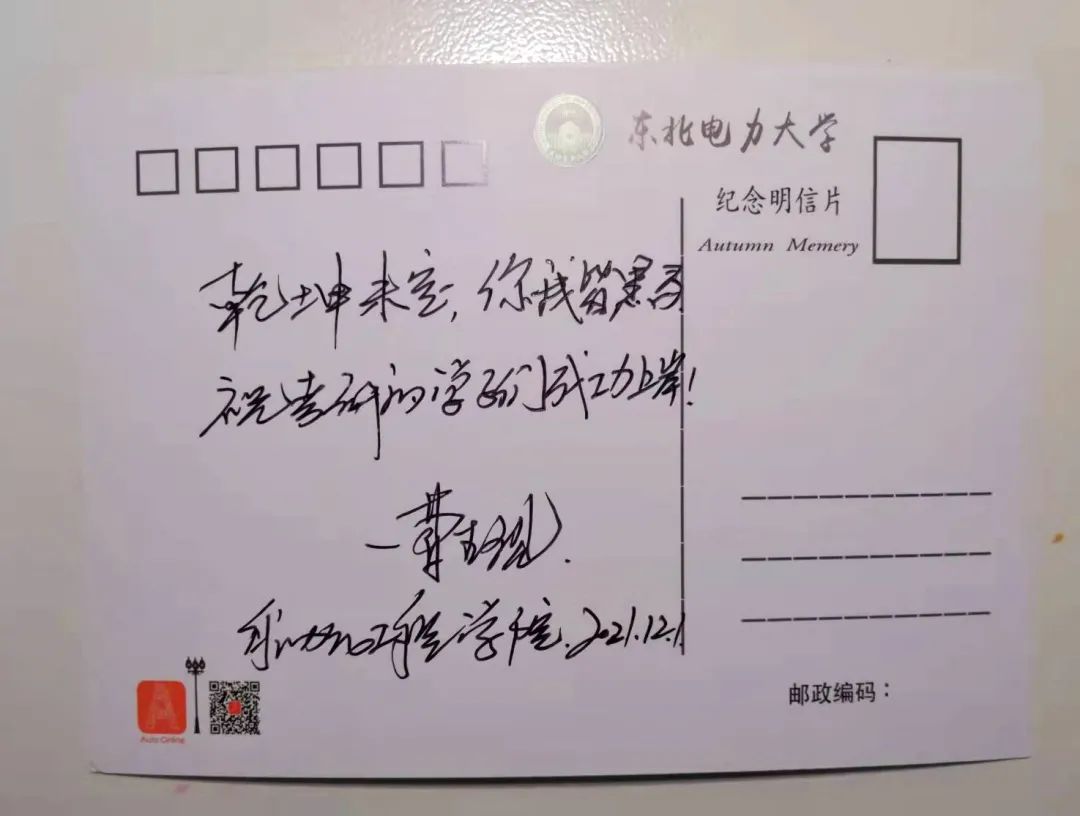 东北电力大学
纪念明信片
Autumn Memery
乾坤未定，你我皆黑马
祝考研的学子们成功上岸！
自动化工程学院.2021.12.1
Auto Online
邮政编码：